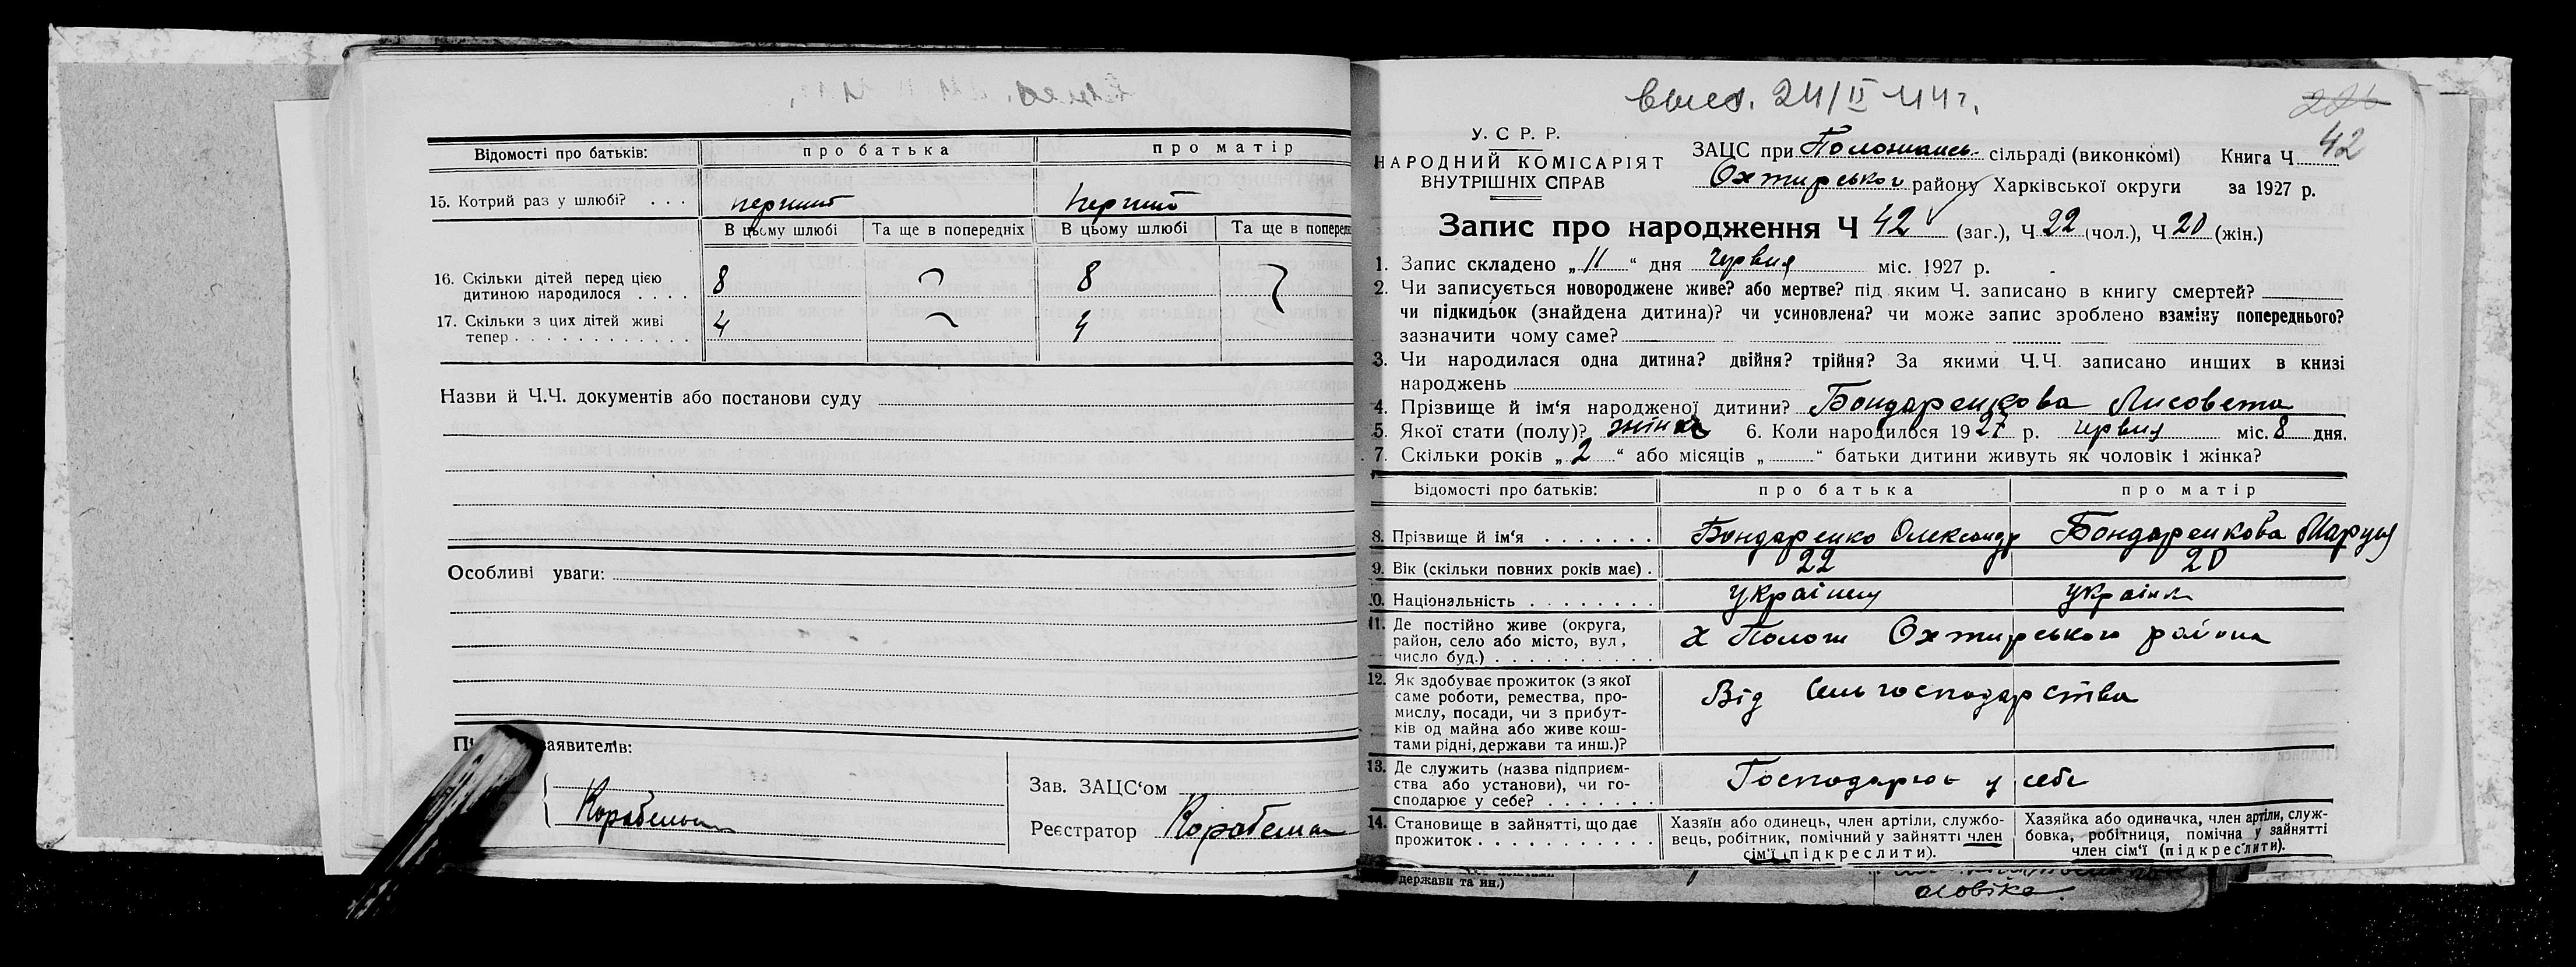 Відомості про батьків: про батька про матір
15. Котрий раз у шлюбі? . . . перший перший
В цьому шлюбі Та ще в попередніх В цьому шлюбі Та ще в поперед
16. Скільки дітей перед цією
дитиною народилося . . . . 8 8
17. Скільки з цих дітей живі
тепер . . . . . . . . . . . . 4 4
Назви й Ч.Ч. документів або постанови суду
Особливі уваги:
заявителів:
Зав. ЗАЦС‘ом
Реєстратор
24/II 44 г.
226
У. С Р. Р.
НАРОДНИЙ КОМІСАРІЯТ
ВНУТРІШНІХ СПРАВ
ЗАЦС при сільраді (виконкомі) Книга Ч 42
Охтирського району Харківської округи за 1927 р.
Запис про народження Ч 42 (заг.), Ч 22 (чол.), Ч 20 (жін.)
1. Запис складено „ 11 “ дня червня міс. 1927 р.
2. Чи записується новороджене живе? або мертве? під яким Ч. записано в книгу смертей?
чи підкидьок (знайдена дитина)? чи усиновлена? чи може запис зроблено взаміну попереднього?
зазначити чому саме?
3. Чи народилася одна дитина? двійня? трійня? За якими Ч.Ч. записано инших в книзі
народжень
4. Прізвище й ім‘я народженої дитини? Бондаренкова Лисовета
5. Якої стати (полу)? жінка 6. Коли народилося 1927 р. червня міс. 8 дня.
7. Скільки років „ 2 “ або місяців „ “ батьки дитини живуть як чоловік і жінка?
Відомості про батьків: про батька про матір
8. Прізвище й ім‘я . . . . . . . Бондаренко Олександр Бондаренкова Марция
9. Вік (скільки повних років має) . 22 20
0. Національність . . . . . . . . українец українка
11. Де постійно живе (округа,
район, село або місто, вул,
число буд.) . . . . . . . . . . х Пологи Охтирського района
12. Як здобуває прожиток (з якої
саме роботи, ремества, про-
мислу, посади, чи з прибут-
ків од майна або живе кош-
тами рідні, держави та инш.)? Від Сельгосподарства
13. Де служить (назва підприєм-
ства або установи), чи го-
сподарює у себе? . . . . . . . Господарює у себе
14. Становище в зайнятті, що дає
прожиток . . . . . . . . . . .
Хазяїн або одинець, член артіли, службо-
вець, робітник, помічний у зайнятті член
сім‘ї (підкреслити).
Хазяйка або одиначка, член артіли, служ-
бовка, робітниця, помічна у зайнятті
член сім‘ї (підкреслити).
держави та ин.)